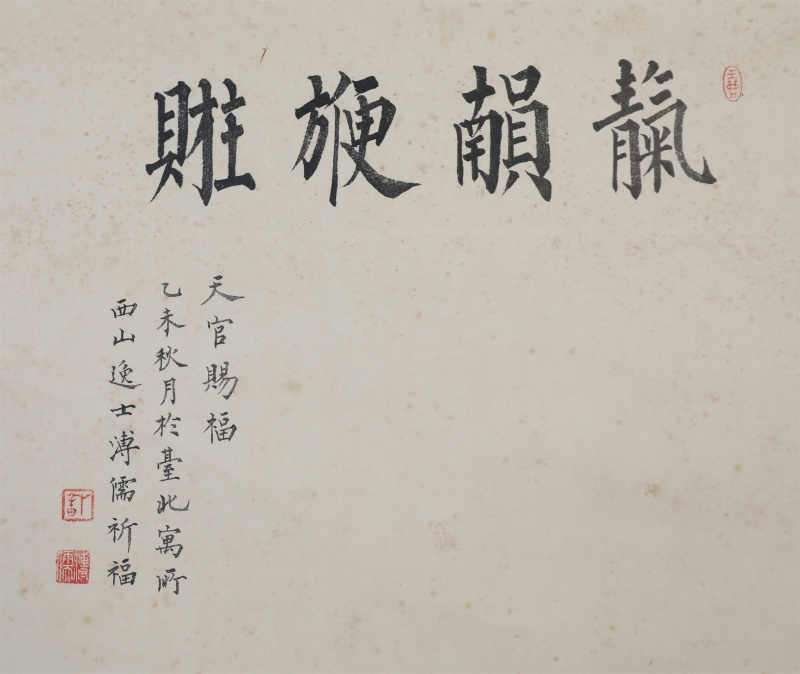 靝
天官賜福
乙未秋月於臺北寓所
西山逸士溥儒祈福
溥儒